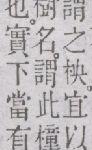 謂之柍宜以
樹名謂此橦
也實下當有